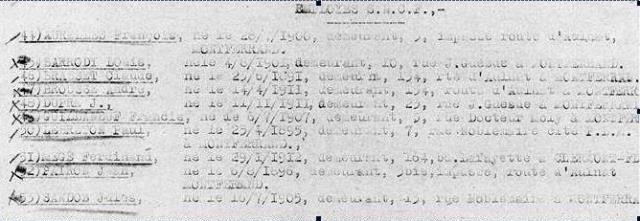 EMPLOYES S.N.C.F.,-
44) François, né le 28/7/1908, demeurant, 5, impasse route d'Aulnat,
MONTFERRAND.
45) BARRODY Louis, né le 4/8/1901, demeurant, 10, rue J.Guesde à MONTFERRAND.
Claude, né le 25/6/1891, demeurant, 154, rte d'Aulnat à MONTFERRA
BROUSSE André, né le 14/4/1911, demeurant, 154, route d'Aulnat à MONTFERR
J., né le 11/11/1911, demeurant, 25, rue J.Guesde à MONTFERR
Francis, né le 6/7/1907, demeurant, 5, rue Docteur à MONTFER
50) Paul, né le 25/4/1895, demeurant, 7, rue Noblemaire cité P.L.M.
à MONTFERRAND.,
51) MEGE Ferdinand, né le 29/1/1912, demeurant, 164, bd.Lafayette à CLERMONT-F
52) Jean, né le 6/8/1898, demeurant, 5bis, impasse, route d'Aulnat
MONTFERRAND.
53) SARDON Jules, né le 18/7/1905, demeurant, 15, rue Noblemaire à MONTFERRA